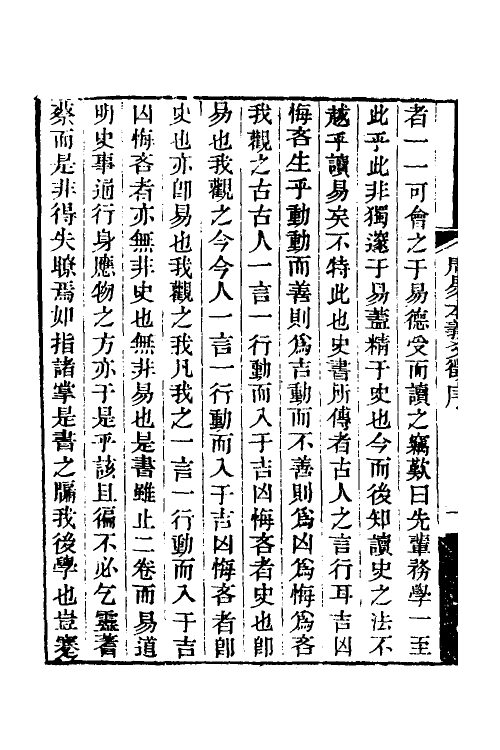 者一一可會之于易德受而讀之竊歎曰先輩務學一至
此乎此非獨邃于易蓋精于史也今而後知讀史之法不
越乎讀易矣不特此也史書所傳者古人之言行耳吉凶
悔吝生乎動動而善則爲吉動而不善則爲凶爲悔爲吝
我觀之古古人一言一行動而入于吉凶悔吝者史也卽
易也我觀之今今人一言一行動而入于吉凶悔吝者卽
史也亦卽易也我觀之我凡我之一言一行動而入于吉
凶悔吝者亦無非史也無非易也是書雖止二卷而易道
明史事通行身應物之方亦于是乎該且徧不必乞靈蓍
蔡而是非得失瞭焉如指諸掌是書之牖我後學也豈
周易本義爻徵序
一